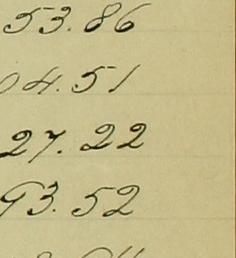 53.86
04.51
27.22
93.52